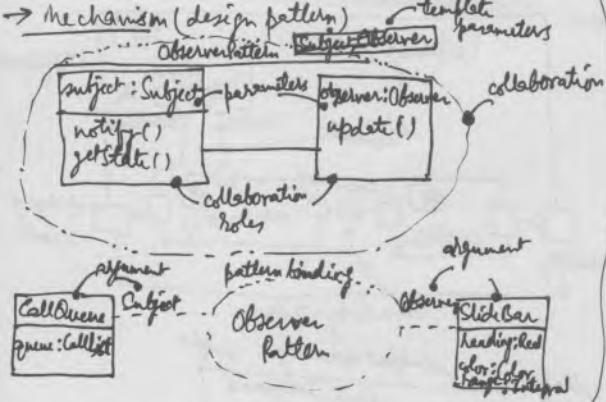 → Mechanism (design pattern)
template parameters
Subject, Observer
ObserverPattern
subject : Subject
parameters
observer : Observer
collaboration
notify()
getState()
update()
collaboration roles
argument
pattern binding
argument
CallQueue
Subject
Observer
SlideBar
queue : CallList
Observer Pattern
color : Color